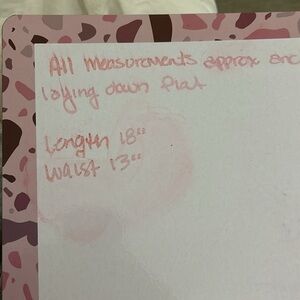 All measurements approx and
laying down flat
Length 18"
Waist 13"